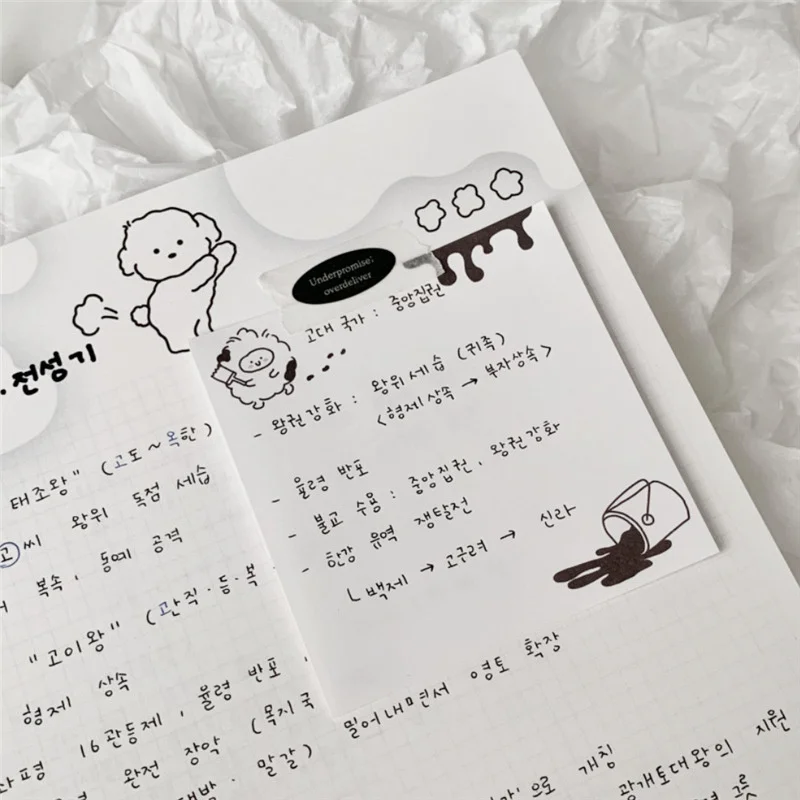 Underpromise;
overdeliver
고대 국가 : 중앙집권
- 왕권강화 : 왕위세습 (귀족)
<형제상속 → 부자상속>
- 율령 반포
- 불교 수용 : 중앙집권, 왕권강화
- 한강 유역 쟁탈전
ㄴ 백제 → 고구려 → 신라
. 전성기
태조왕" (고도~옥한)
고씨 왕위 독점 세습
복속, 동예 공격
"고이왕" (관직·등·복·
형제 상속
16관등제, 율령 반포,
완전 장악 (목지국
밀어내면서 영토 확장
말갈)
으로 개칭
광개토대왕의 지원